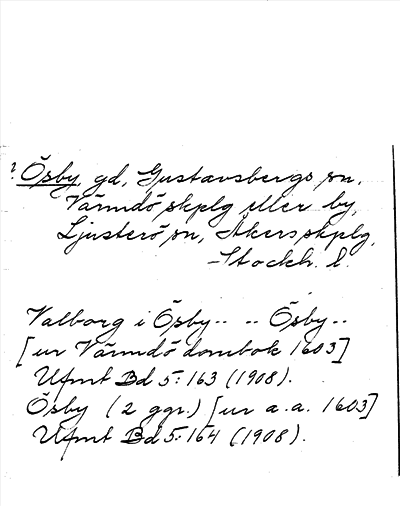 ? Ösby, gd, Gustavsbergs sn,
Värmdö skplg eller by,
Ljusterö sn, Åkers skplg,
-Stockh. l.
Valborg i Ösby.. .. Ösby..
[ur Värmdö dombok 1603]
Ufmt Bd 5:163 (1908).
Ösby (2 ggr.) [ur a.a. 1603]
Ufmt Bd 5:164 (1908).